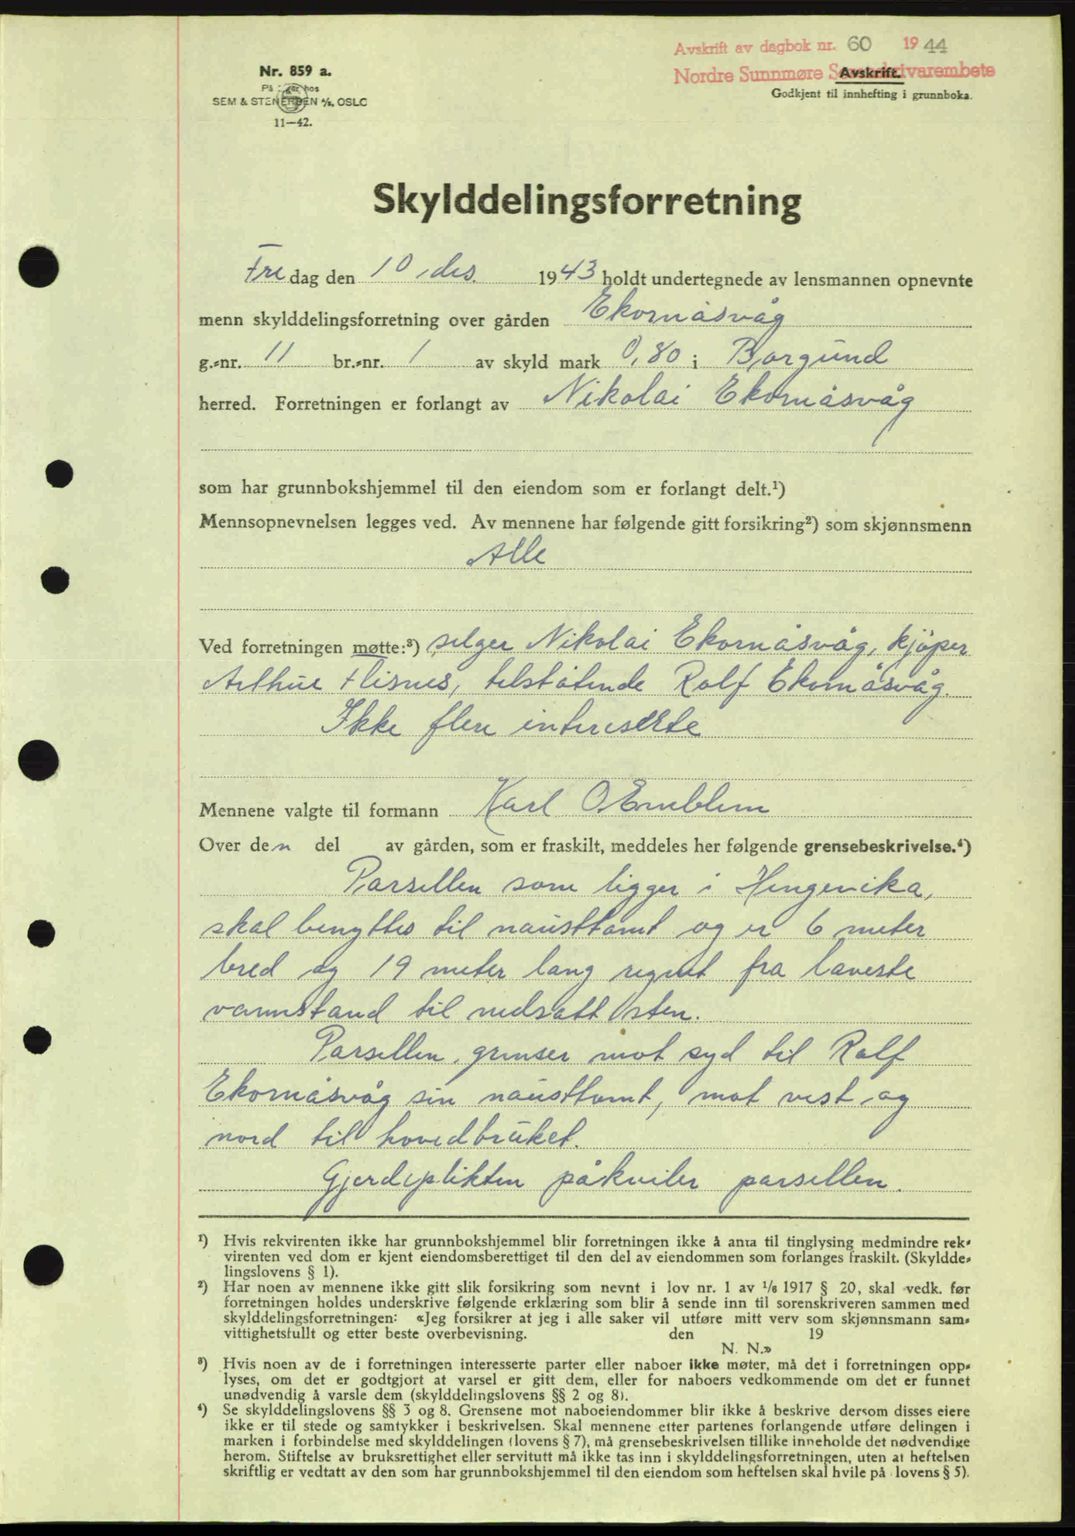 Avskrift av dagbok nr. 60 1944
Nordre Sunnmøre Sorenskrivarembete
Nr. 859 a.
Avskrift.
Godkjent til innhefting i grunnboka.
SEM & STENERSEN A/S, OSLO
11-42.
Skylddelingsforretning
Fredag den 10. des. 1943 holdt undertegnede av lensmannen opnevnte
menn skylddelingsforretning over gården Ekornåsvåg
g.-nr. 11 br.-nr. 1 av skyld mark 0,80 i Borgund
herred. Forretningen er forlangt av Nikolai Ekornåsvåg
som har grunnbokshjemmel til den eiendom som er forlangt delt.¹)
Mennsopnevnelsen legges ved. Av mennene har følgende gitt forsikring²) som skjønnsmenn
Alle
Ved forretningen møtte:³) selger Nikolai Ekornåsvåg, kjøper
Arthur Flisnes, tilstøtende Rolf Ekornåsvåg.
Ikke flere interesserte
Mennene valgte til formann Karl O Emblem
Over den del av gården, som er fraskilt, meddeles her følgende grensebeskrivelse.⁴)
Parsellen som ligger i Hengevika,
skal benyttes til nausttomt og er 6 meter
bred og 19 meter lang regnet fra laveste
vannstand til nedsatt sten.
Parsellen grenser mot syd til Rolf
Ekornåsvåg sin nausttomt, mot vest og
nord til hovedbruket.
Gjerdeplikten påkviler parsellen.
¹) Hvis rekvirenten ikke har grunnbokshjemmel blir forretningen ikke å anta til tinglysing medmindre rek-
virenten ved dom er kjent eiendomsberettiget til den del av eiendommen som forlanges fraskilt. (Skyldde-
lingslovens § 1).
²) Har noen av mennene ikke gitt slik forsikring som nevnt i lov nr. 1 av 1/6 1917 § 20, skal vedk. før
forretningen holdes underskrive følgende erklæring som blir å sende inn til sorenskriveren sammen med
skylddelingsforretningen: «Jeg forsikrer at jeg i alle saker vil utføre mitt verv som skjønnsmann sam-
vittighetsfullt og etter beste overbevisning. den 19
N. N.»
³) Hvis noen av de i forretningen interesserte parter eller naboer ikke møter, må det i forretningen opp-
lyses, om det er godtgjort at varsel er gitt dem, eller for naboers vedkommende om det er funnet
unødvendig å varsle dem (skylddelingslovens §§ 2 og 8).
⁴) Se skylddelingslovens §§ 3 og 8. Grensene mot naboeiendommer blir ikke å beskrive dersom disses eiere
ikke er til stede og samtykker i beskrivelsen. Skal mennene etter partenes forlangende utføre delingen i
marken i forbindelse med skylddelingen (lovens § 7), må grensebeskrivelsen tillike inneholde det nødvendige
herom. Stiftelse av bruksrettighet eller servitutt må ikke tas inn i skylddelingsforretningen, uten at heftelsen
skriftlig er vedtatt av den som har grunnbokshjemmel til den eiendom som heftelsen skal hvile på lovens § 5).